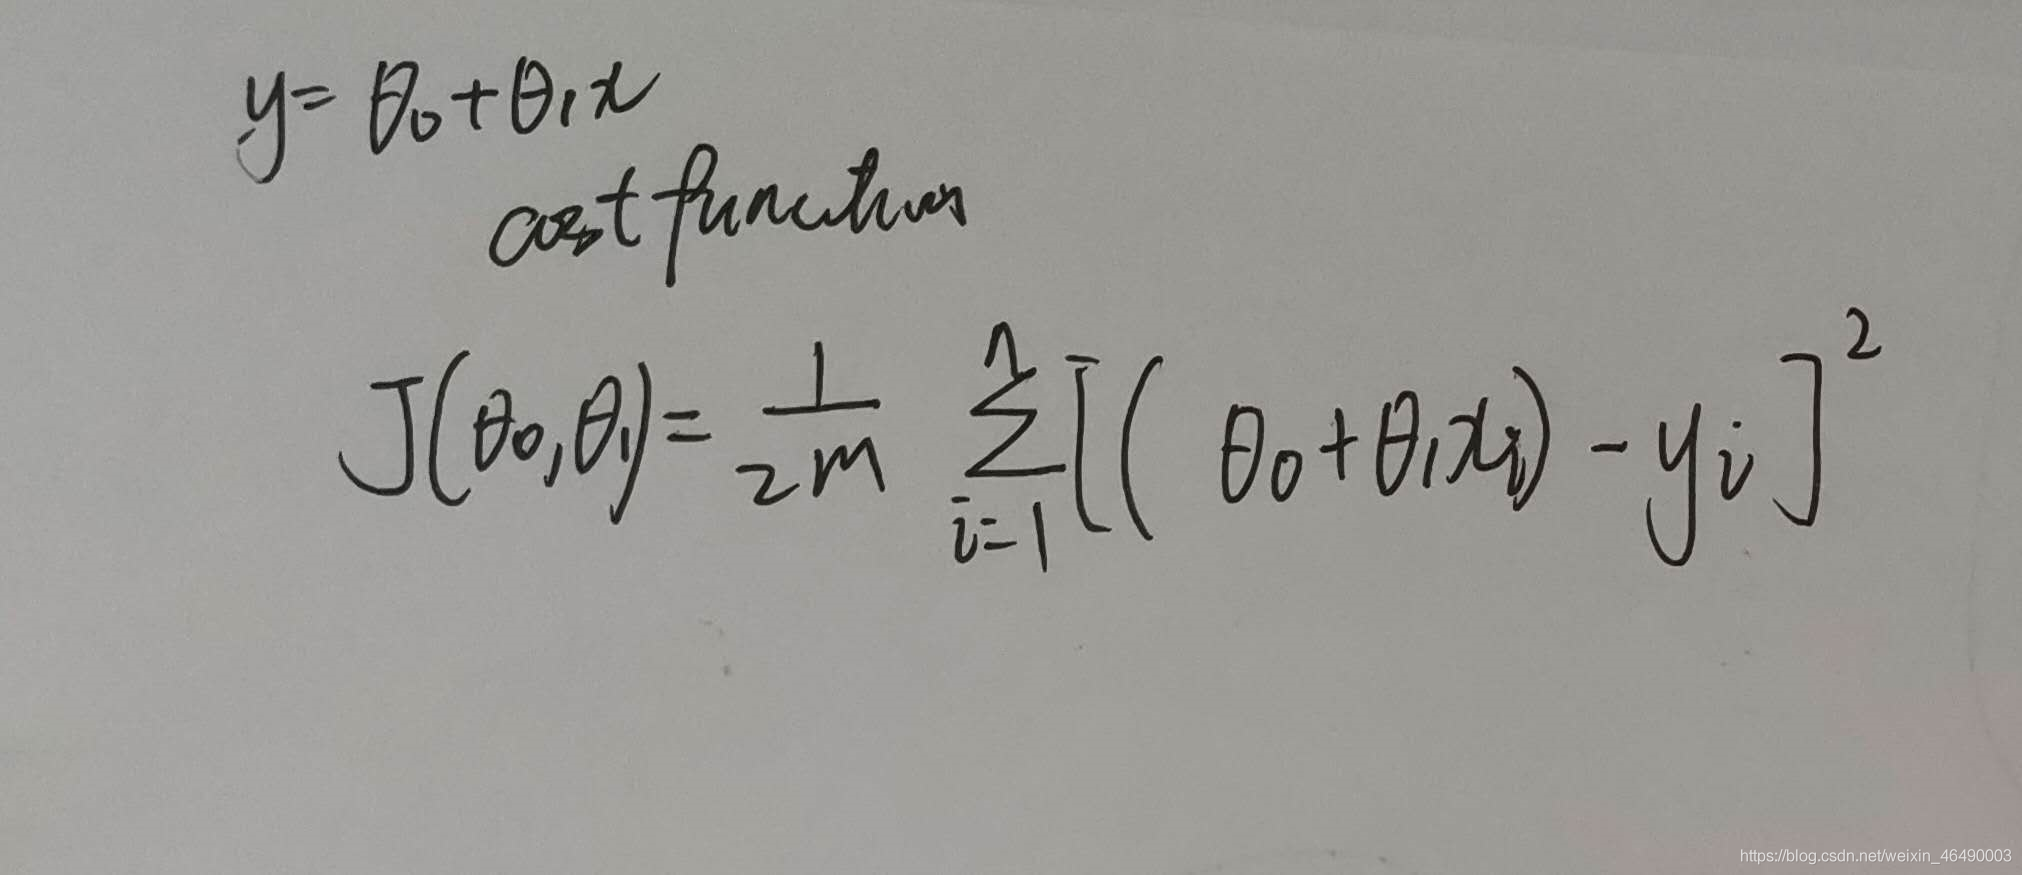 y = θ₀ + θ₁x
cost function
J(θ₀, θ₁) = 1/2m ∑ᵢ₌₁ⁿ [(θ₀ + θ₁xᵢ) - yᵢ]²
https://blog.csdn.net/weixin_46490003